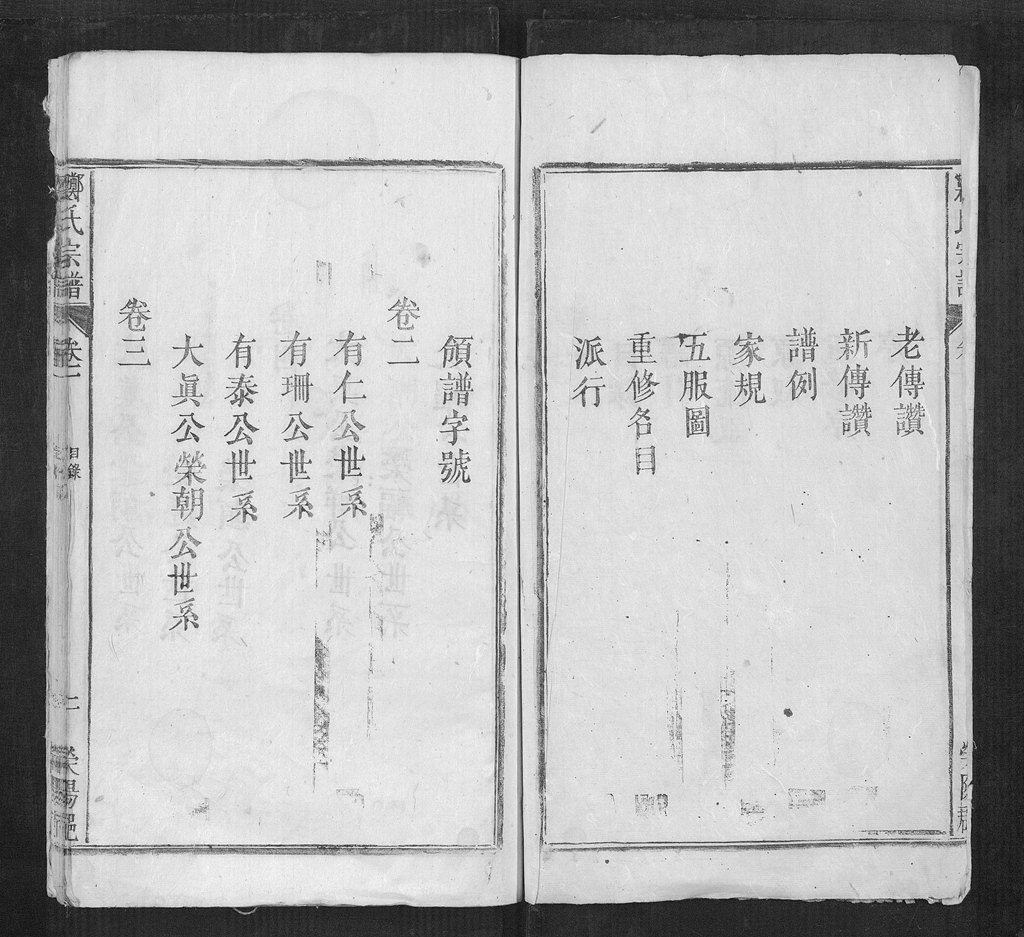 老傳讚
新傳讚
譜例
家規
五服圖
重修名目
派行
領譜字號
卷二
有仁公世系
有珊公世系
有泰公世系
大眞公榮朝公世系
卷三
鄭氏宗譜
卷一
目錄
二